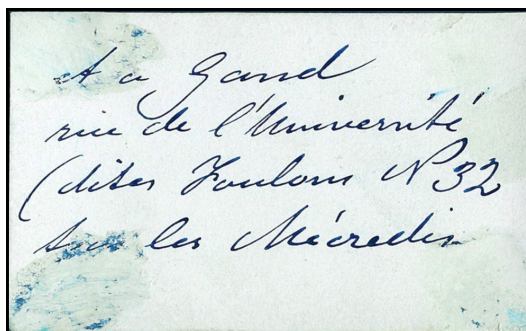 et a Gand
rue de l'Université
(dites Foulons N 32
les Mécredis